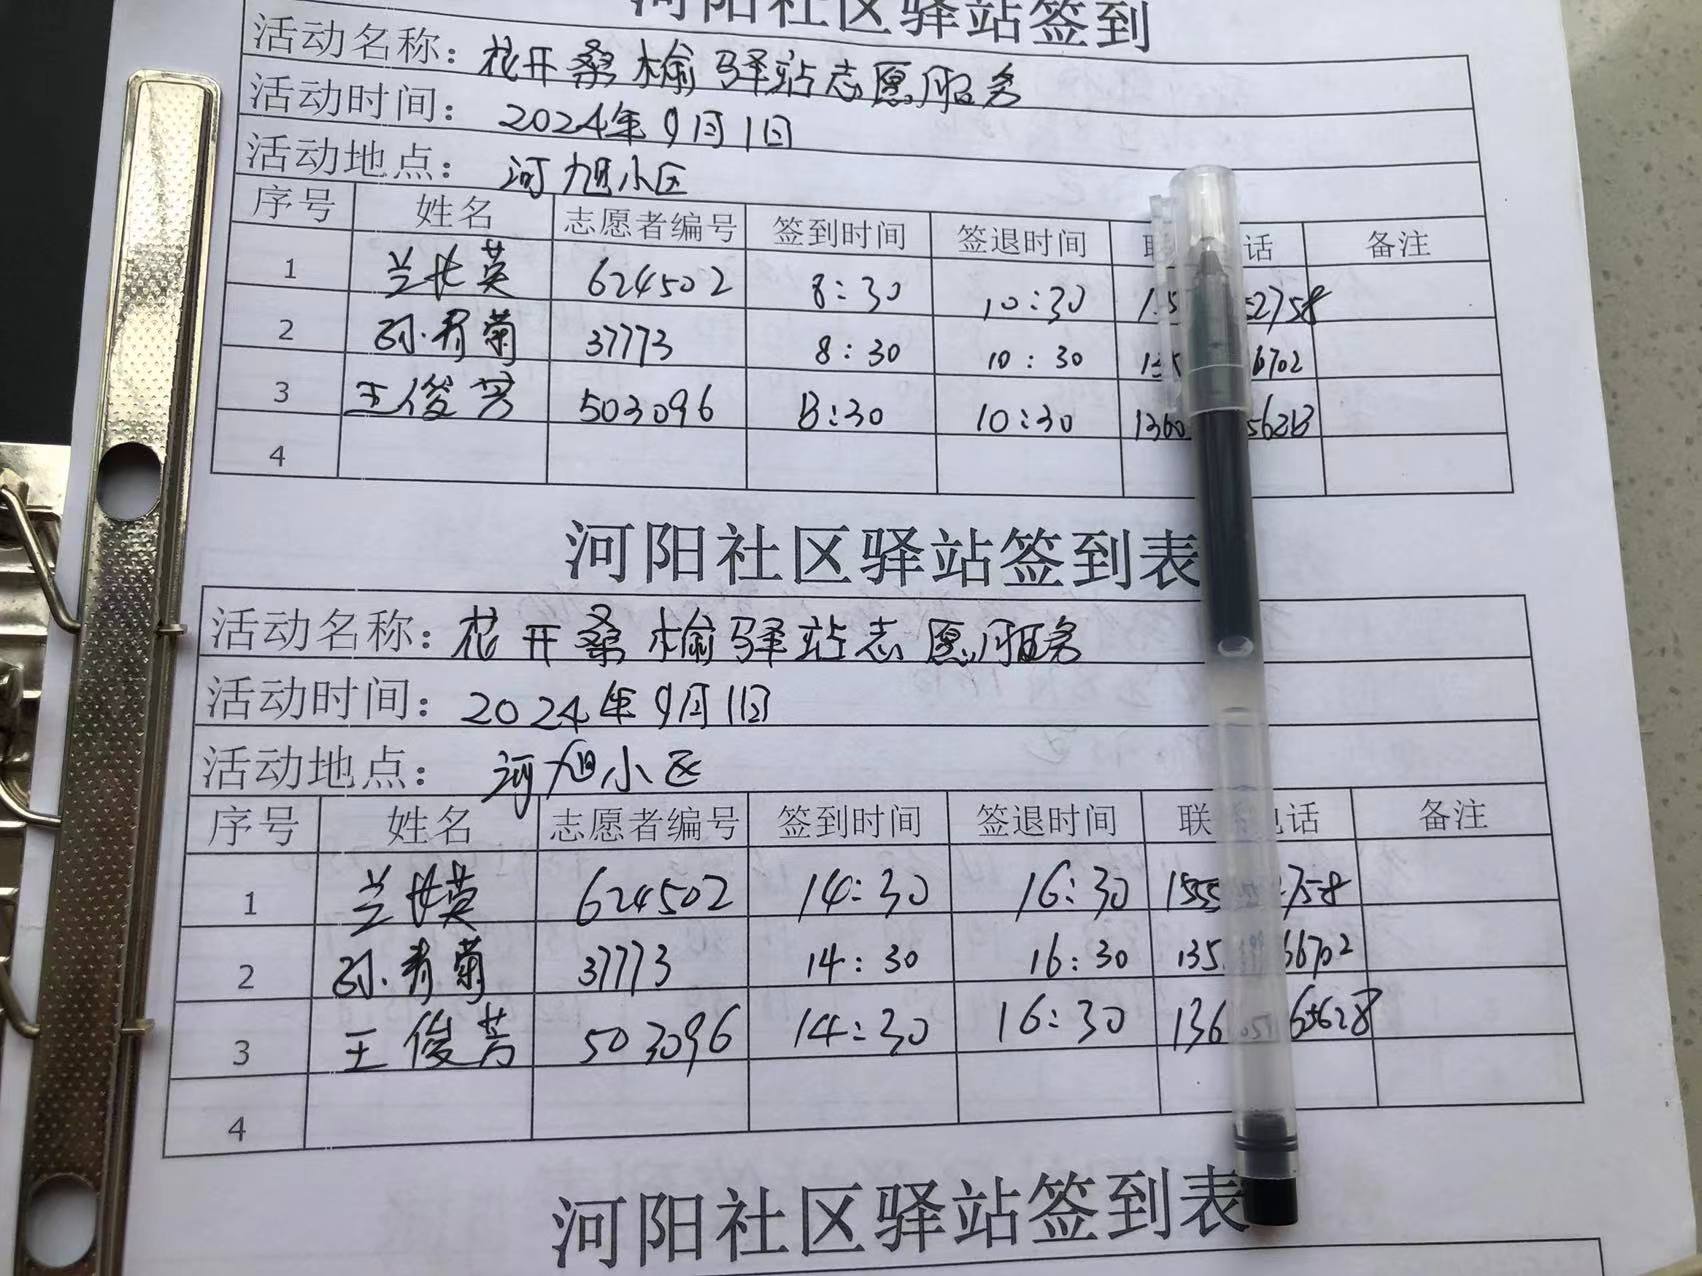 河阳社区驿站签到
活动名称：花开桑榆驿站志愿服务
活动时间：2024年9月1日
活动地点：河旭小区
序号 姓名 志愿者编号 签到时间 签退时间 联 话 备注
1 兰长英 624502 8:30 10:30
2 孙秀菊 37773 8:30 10:30
3 王俊芳 503096 8:30 10:30
4
河阳社区驿站签到表
活动名称：花开桑榆驿站志愿服务
活动时间：2024年9月1日
活动地点：河旭小区
序号 姓名 志愿者编号 签到时间 签退时间 联 电话 备注
1 兰长英 624502 14:30 16:30
2 孙秀菊 37773 14:30 16:30
3 王俊芳 503096 14:30 16:30
4
河阳社区驿站签到表